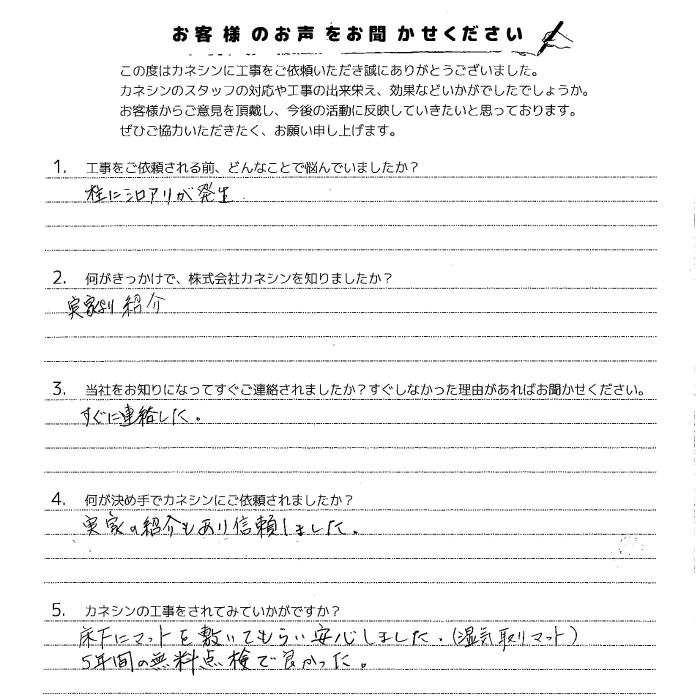 お客様のお声をお聞かせください
この度はカネシンに工事をご依頼いただき誠にありがとうございました。
カネシンのスタッフの対応や工事の出来栄え、効果などいかがでしたでしょうか。
お客様からご意見を頂戴し、今後の活動に反映していきたいと思っております。
ぜひご協力いただきたく、お願い申し上げます。
1. 工事をご依頼される前、どんなことで悩んでいましたか？
柱にシロアリが発生
2. 何がきっかけで、株式会社カネシンを知りましたか？
実家より紹介
3. 当社をお知りになってすぐご連絡されましたか？すぐしなかった理由があればお聞かせください。
すぐに連絡した。
4. 何が決め手でカネシンにご依頼されましたか？
実家の紹介もあり信頼しました。
5. カネシンの工事をされてみていかがですか？
床下にマットを敷いてもらい安心しました.(湿気取りマット)
5年間の無料点検で良かった。